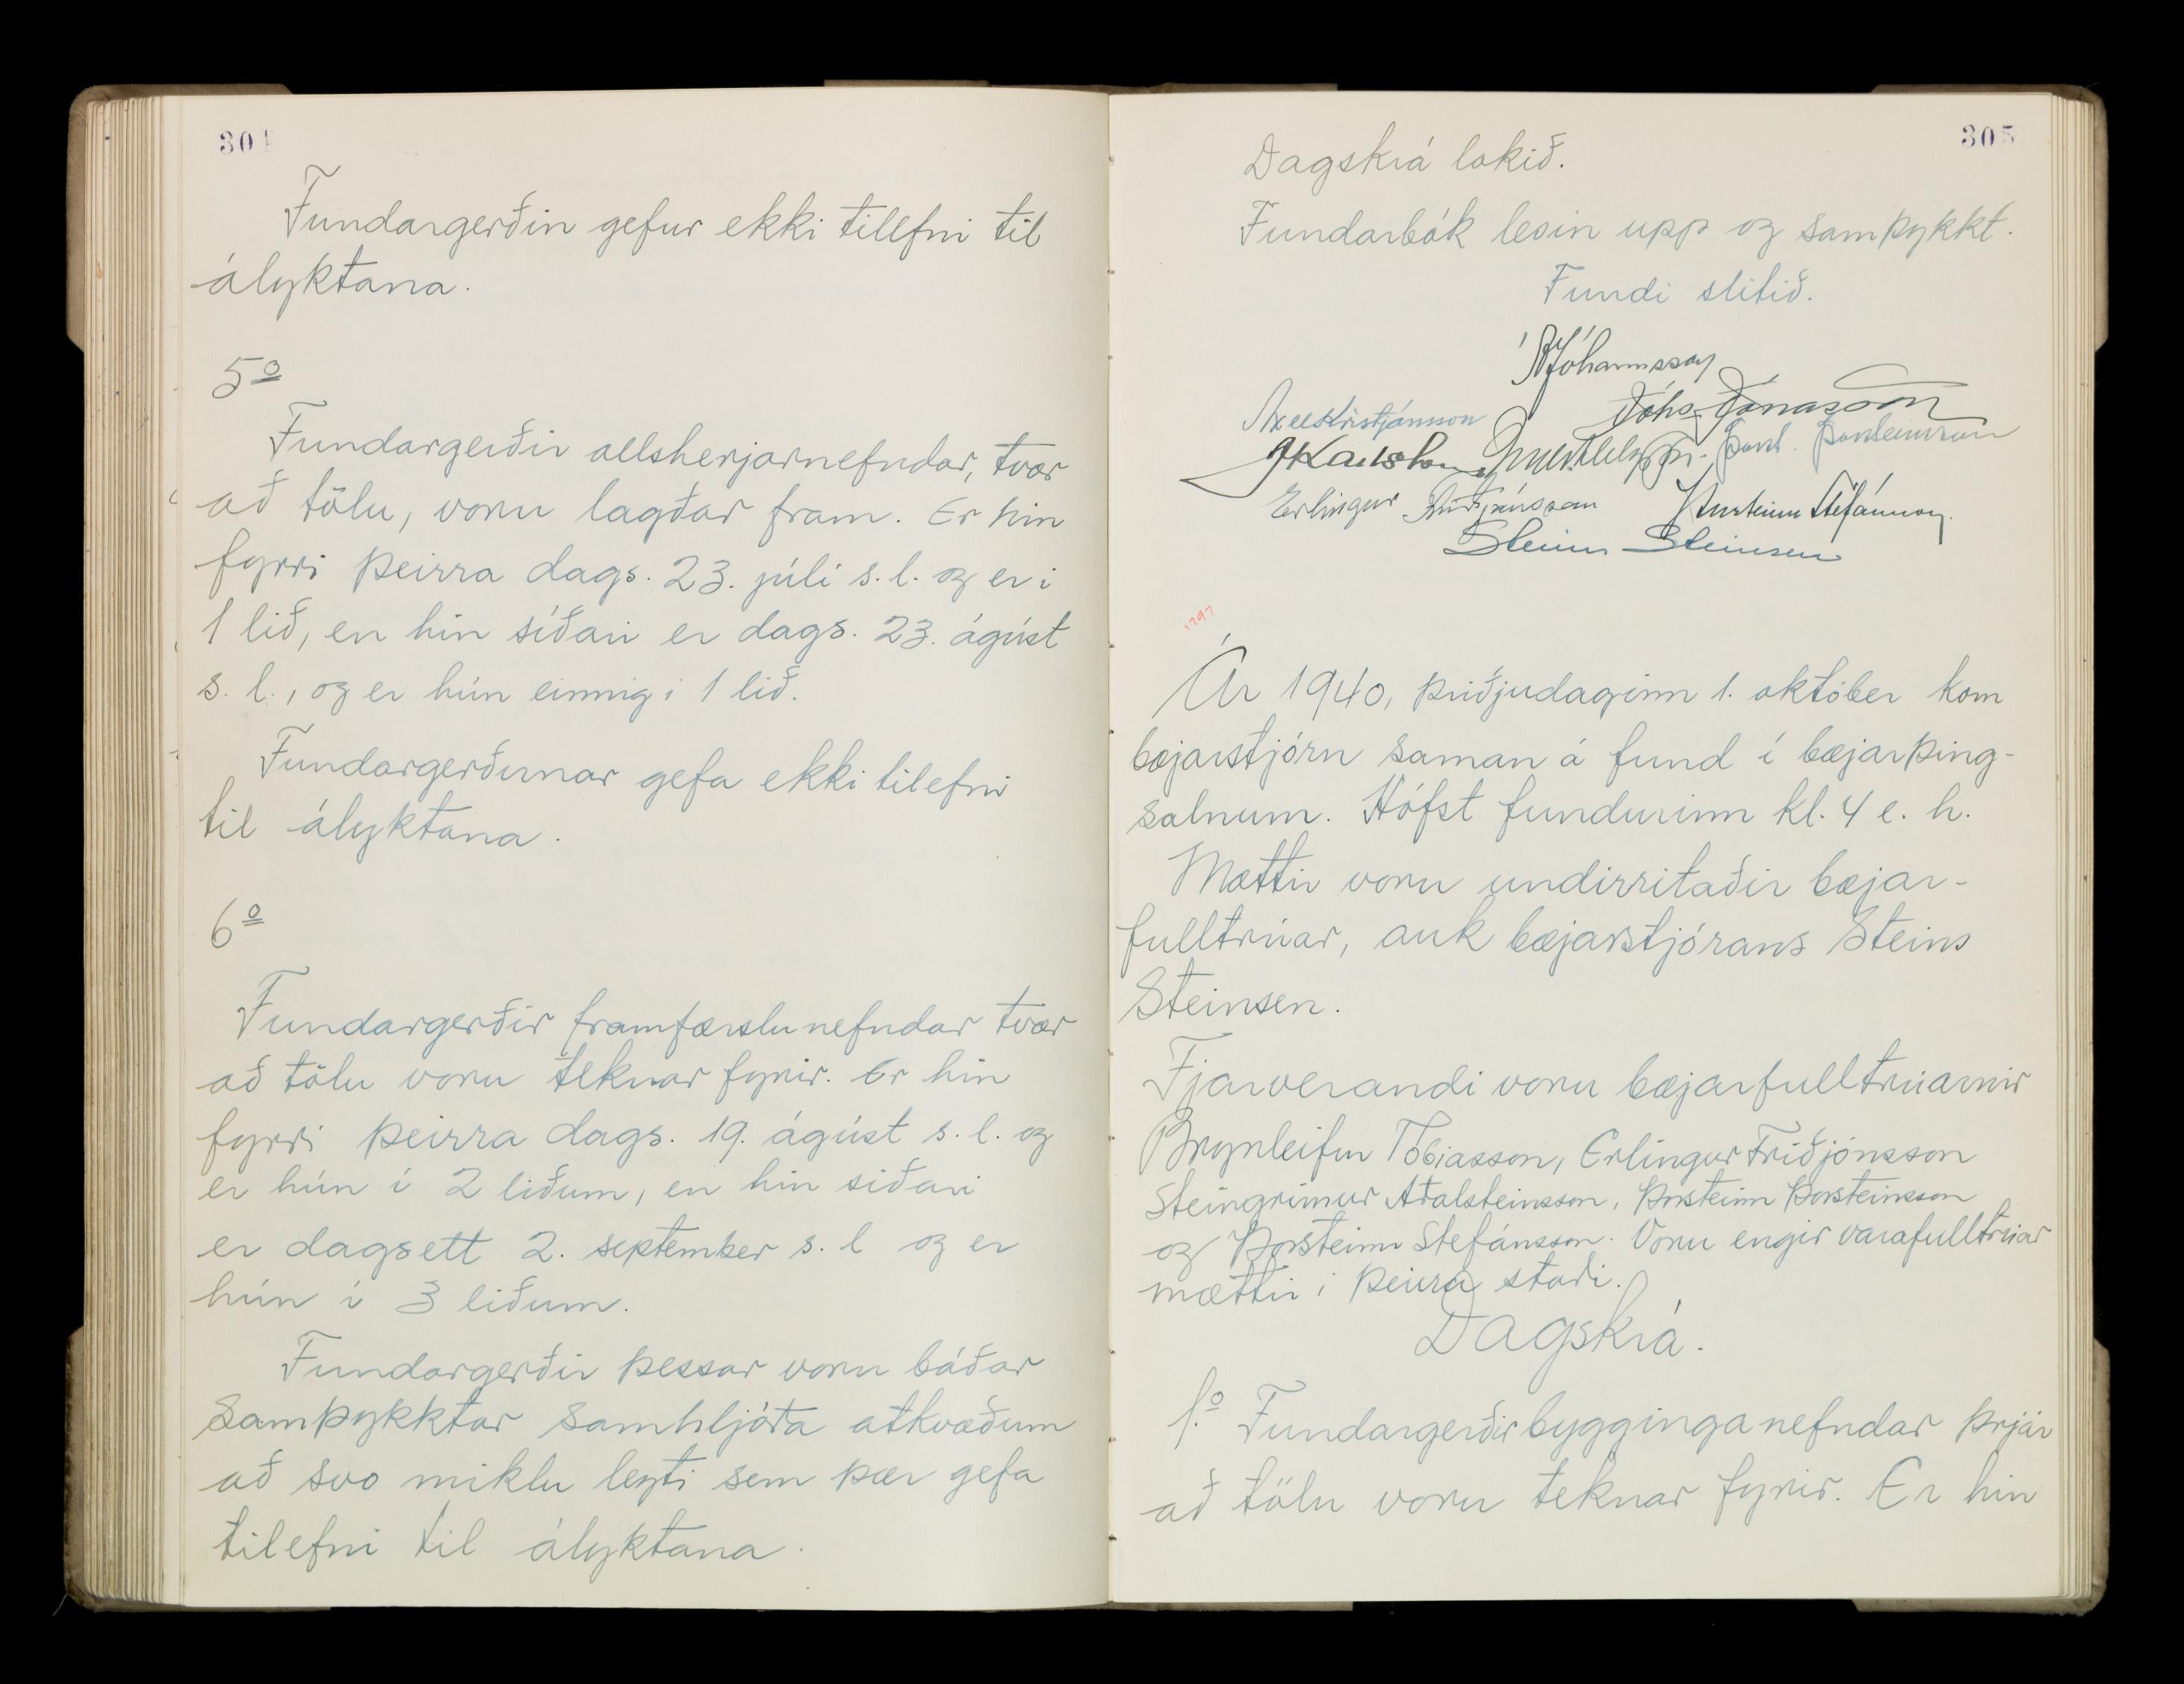 304
Fundargerðin gefur ekki tillefni til
ályktana.
5º
Fundargerðir allsherjarnefndar, tvær
að tölu, voru lagðar fram. Er hin
fyrri þeirra dags. 23. júlí s.l. og er í
1 lið, en hin síðari er dags. 23. ágúst
s. l., og er hún einnig í 1 lið.
Fundargerðirnar gefa ekki tilefni
til ályktana.
6º
Fundargerðir framfærslunefndar tvær
að tölu voru teknar fyrir. Er hin
fyrri þeirra dags. 19. ágúst s.l. og
er hún í 2 liðum, en hin síðari
er dagsett 2. september s. l og er
hún í 3 liðum.
Fundargerðir þessar voru báðar
samþykktar samhljóða atkvæðum
að svo miklu leyti sem þær gefa
tilefni til ályktana.
305
Dagskrá lokið.
Fundarbók lesin upp og samþykkt.
Fundi slitið.
Jóhannsson
Axel Kristjánsson Jóhs. Jónasson
JKarlsson
Erlingur Friðjónsson Þorsteinn Stefánsson
Steinn Steinsen
1797
Ár 1940, þriðjudaginn 1. október kom
bæjarstjórn saman á fund í bæjarþing-
salnum. Hófst fundurinn kl. 4 e. h.
Mættir voru undirritaðir bæjar-
fulltrúar, auk bæjarstjórans Steins
Steinsen.
Fjarverandi voru bæjarfulltrúarnir
Brynleifur Tobiasson, Erlingur Friðjónsson
Steingrímur Aðalsteinsson, Þorsteinn Þorsteinsson
og Þorsteinn Stefánsson. Voru engir varafulltrúar
mættir í þeirra staði.
Dagskrá.
1.º Fundargerðir bygginganefndar þrjár
að tölu voru teknar fyrir. Er hin